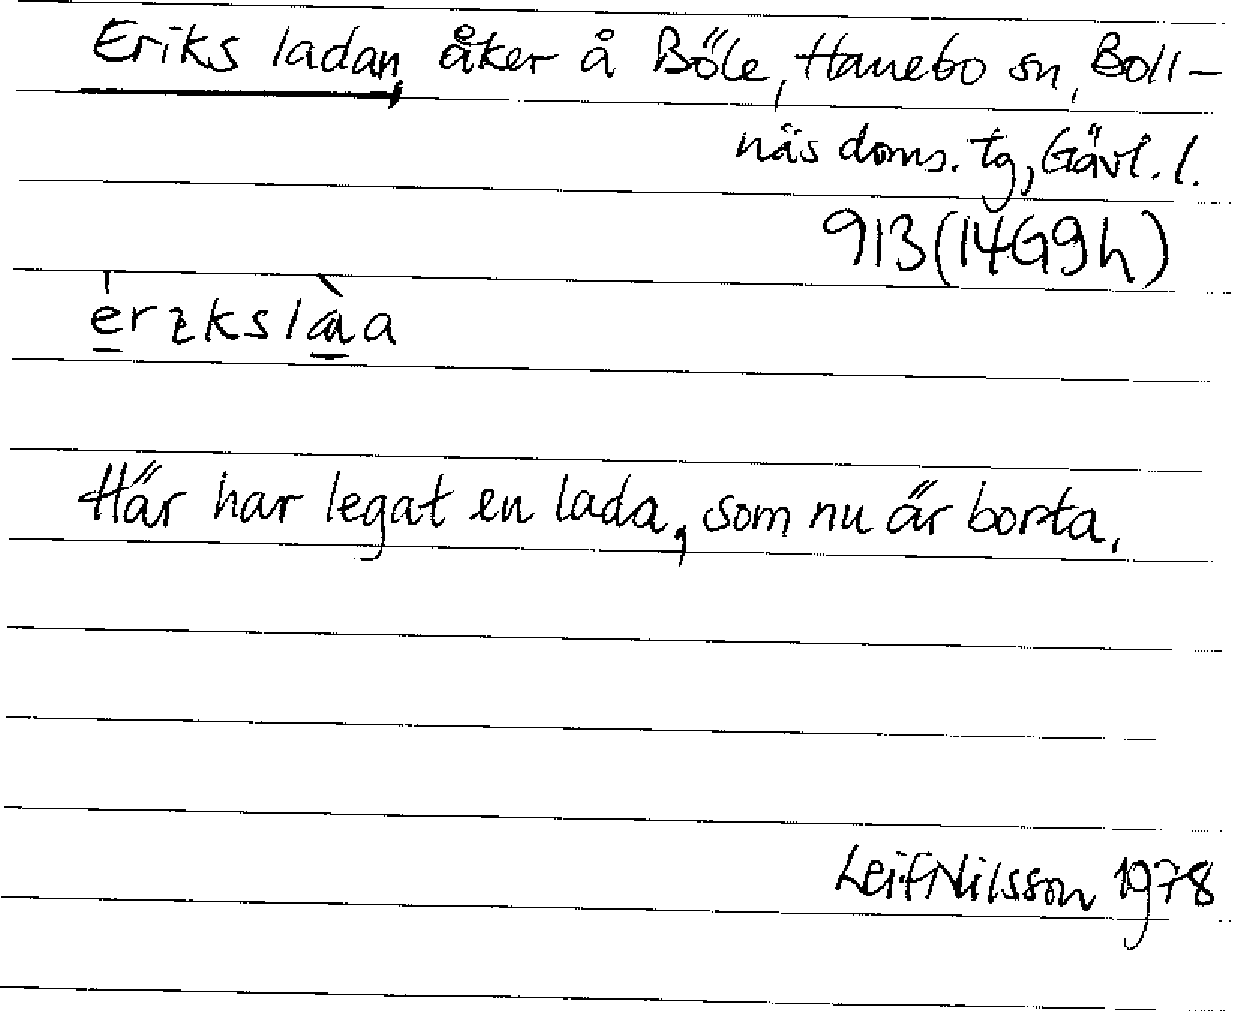 Eriks ladan, åker å Böle, Hanebo sn, Boll-
näs doms. tg, Gävl. l.
913 (14G9h)
érɪkslàa
Här har legat en lada, som nu är borta.
Leif Nilsson 1978